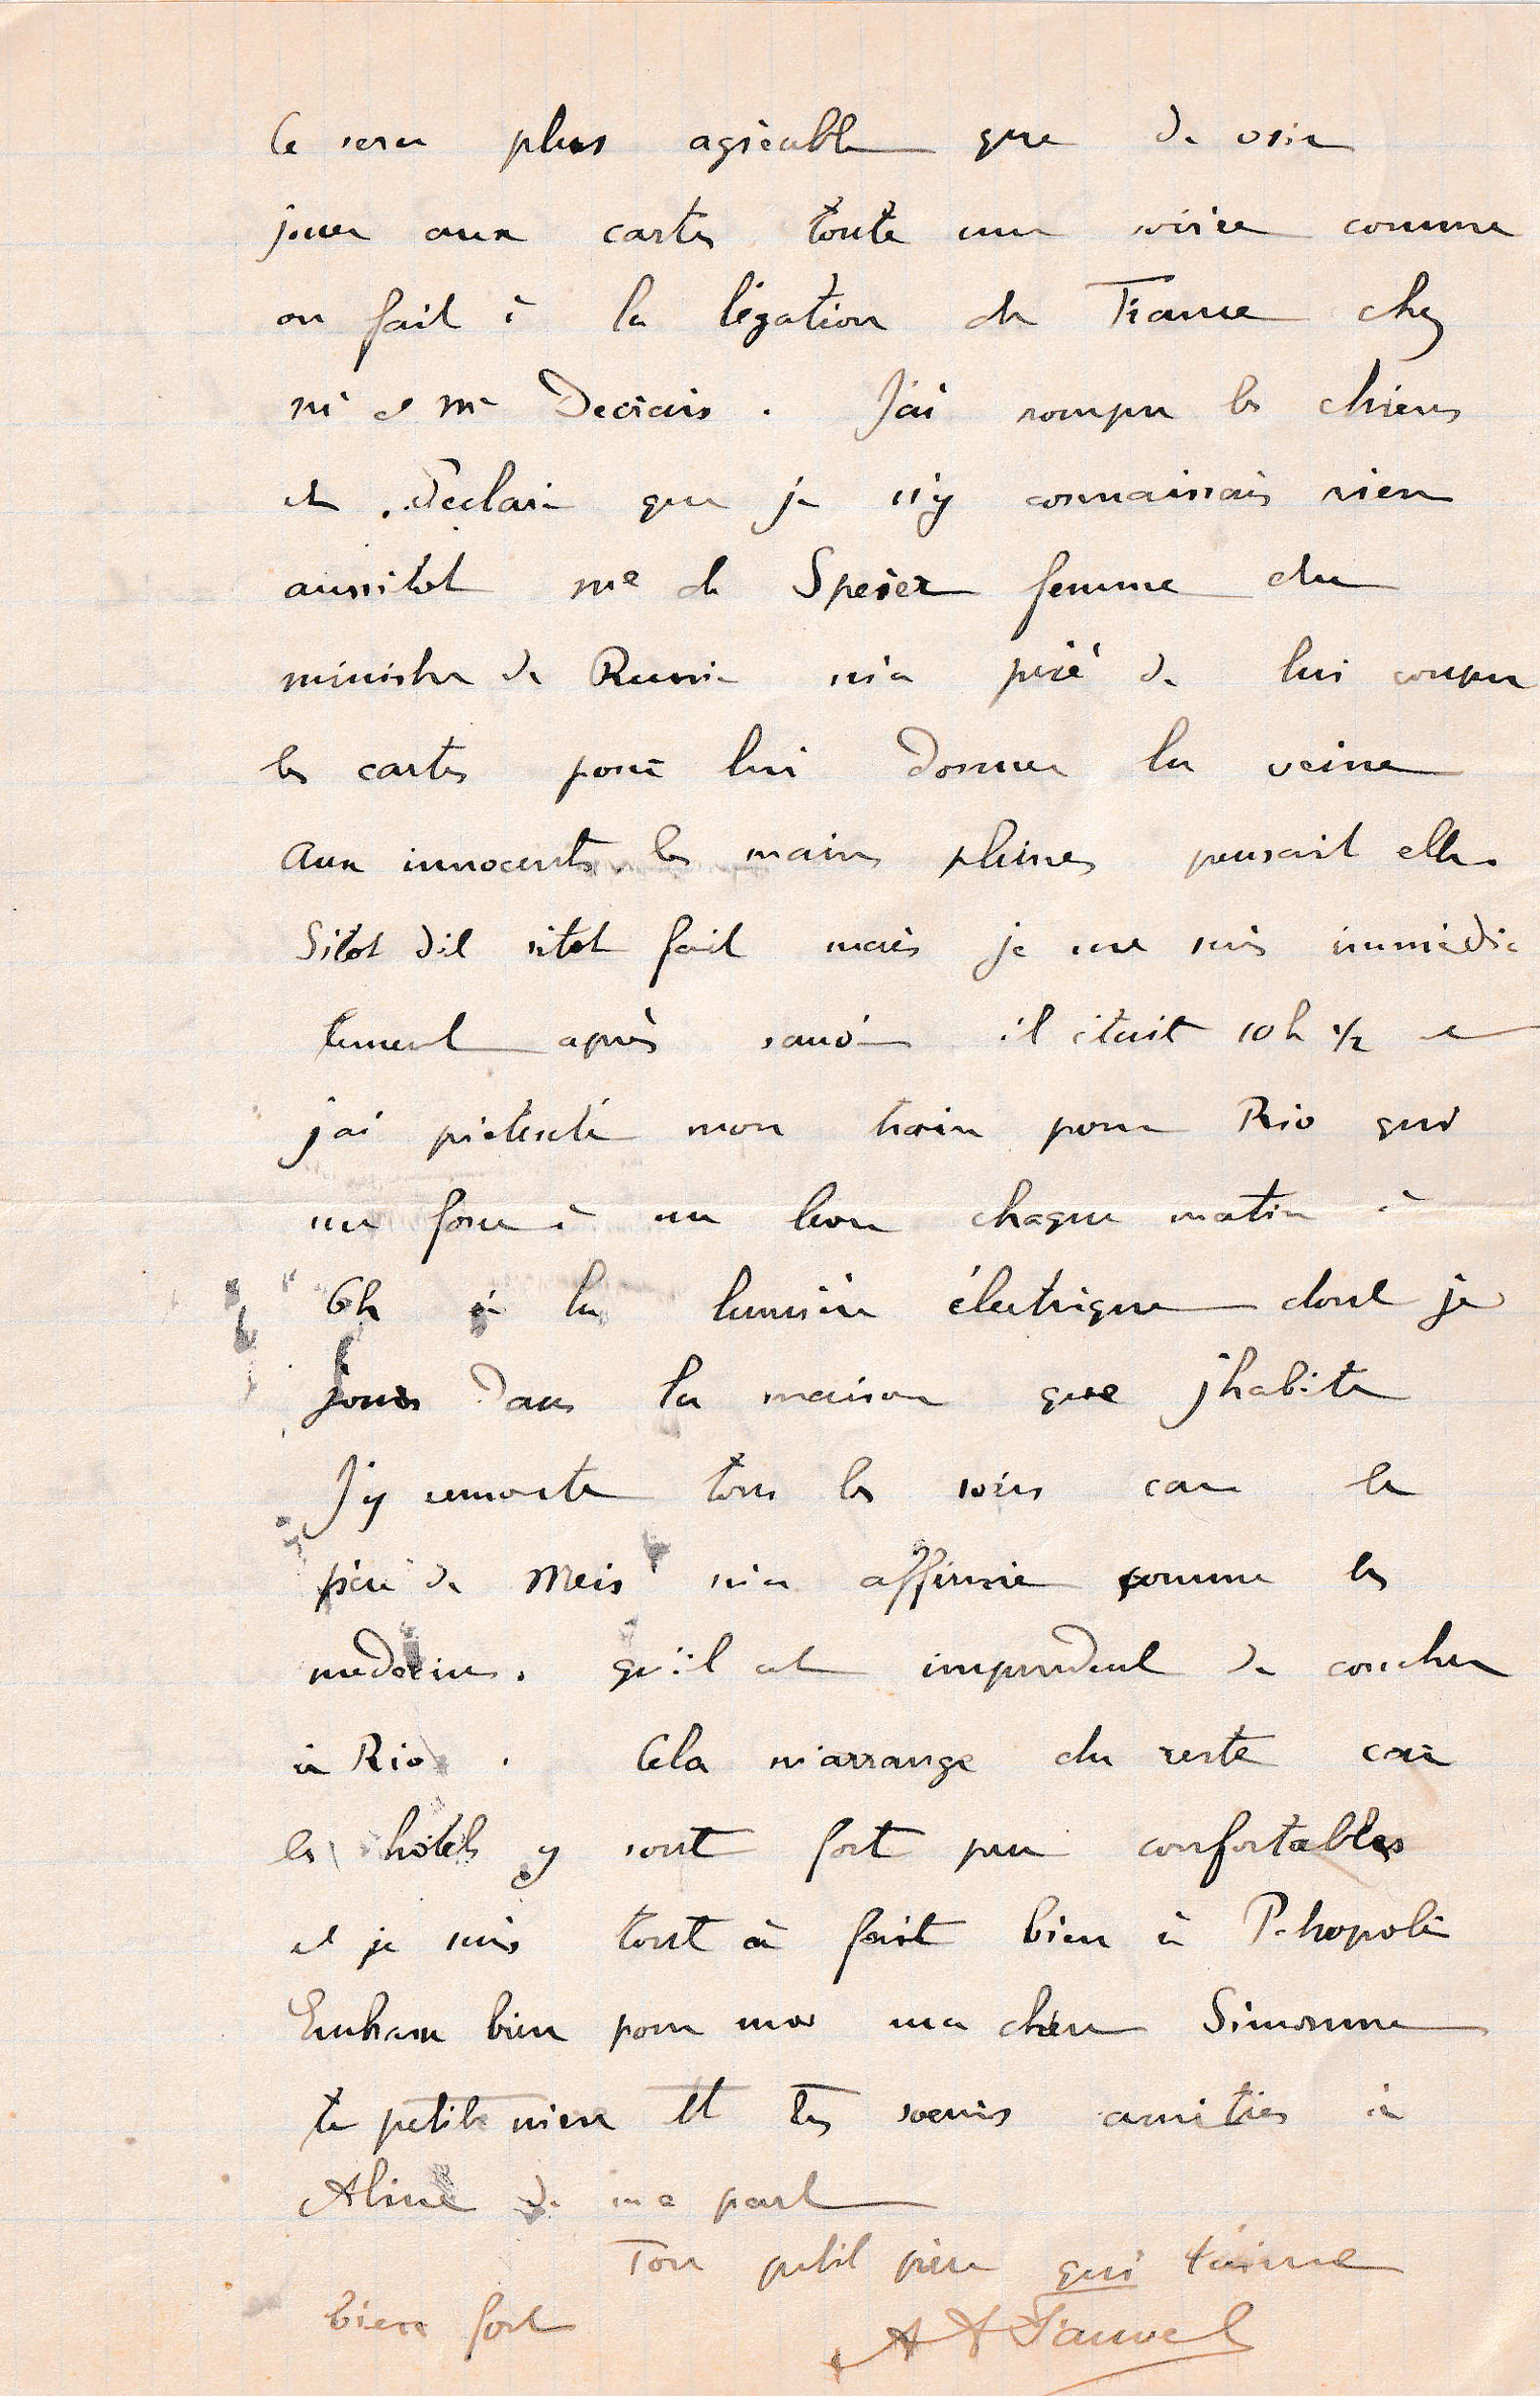 Ce sera plus agréable que de voir
jouer aux cartes toute une soirée comme
on fait à la légation de France chez
Mr et Me Decrais. J'ai rompu les chiens
et déclaré que je n'y connaissais rien
aussitot Me de Speier femme du
ministre de Russie m'a prié de lui couper
les cartes pour lui donner la veine
Aux innocents les mains pleines pensait elle.
Sitot dit sitot fait mais je me suis immédia
tement après sauvé il était 10h ½ et
j'ai prétexté mon train pour Rio qui
me force à me lever chaque matin à
6h à la lumière électrique dont je
jouis dans la maison que j'habite
J'y remonte tous les soirs car le
père de Meis m'a affirmé comme les
medecins. qu'il est imprudent de coucher
à Rio. Cela m'arrange du reste car
les hôtels y sont fort peu confortables
et je suis tout à fait bien à Petropolis
Embrasse bien pour moi ma chère Simonne
ta petite mère et tes soeurs amitiés à
Aline de ma part
Ton petit père qui t'aime
bien fort
A A Fauvel